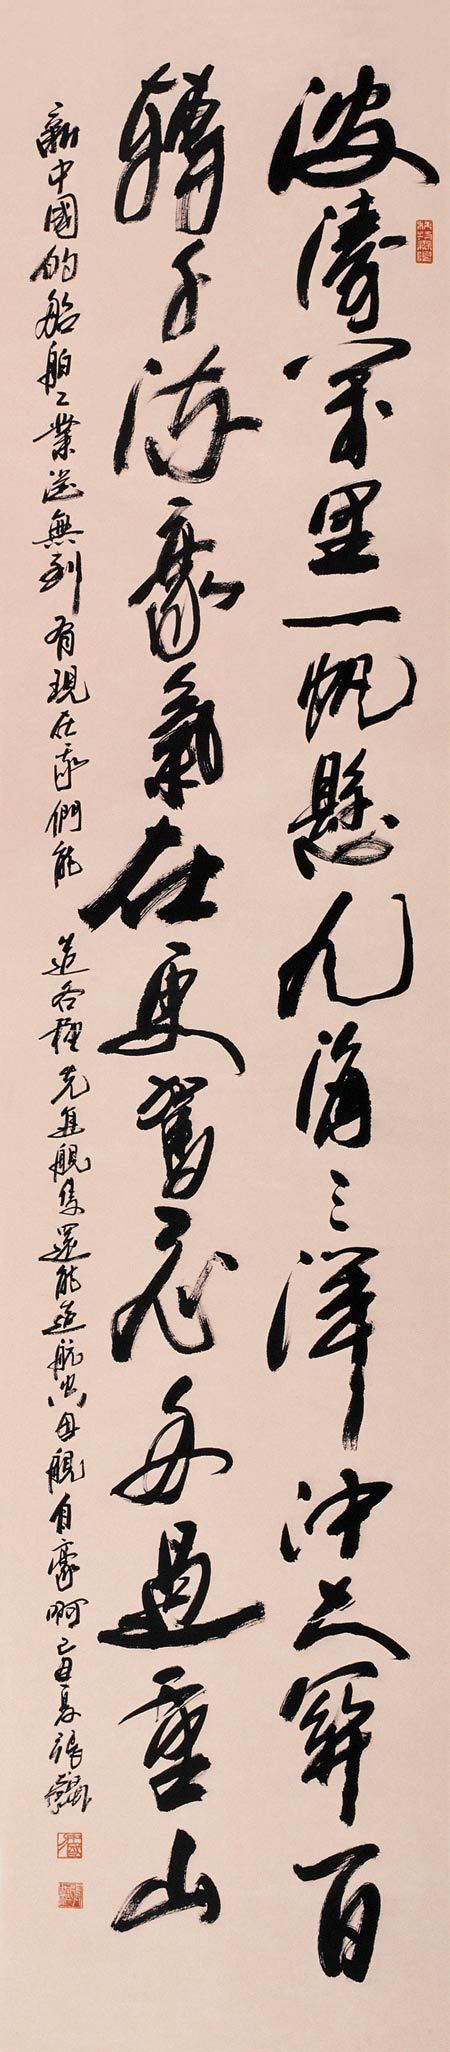 波濤萬里一帆懸九海三洋沖百
轉千流豪氣在更駕飛舟過重山
新中國的船舶工業從無到有現在我們能造各種先進艦隻還能造航空母艦自豪啊己丑夏張飆